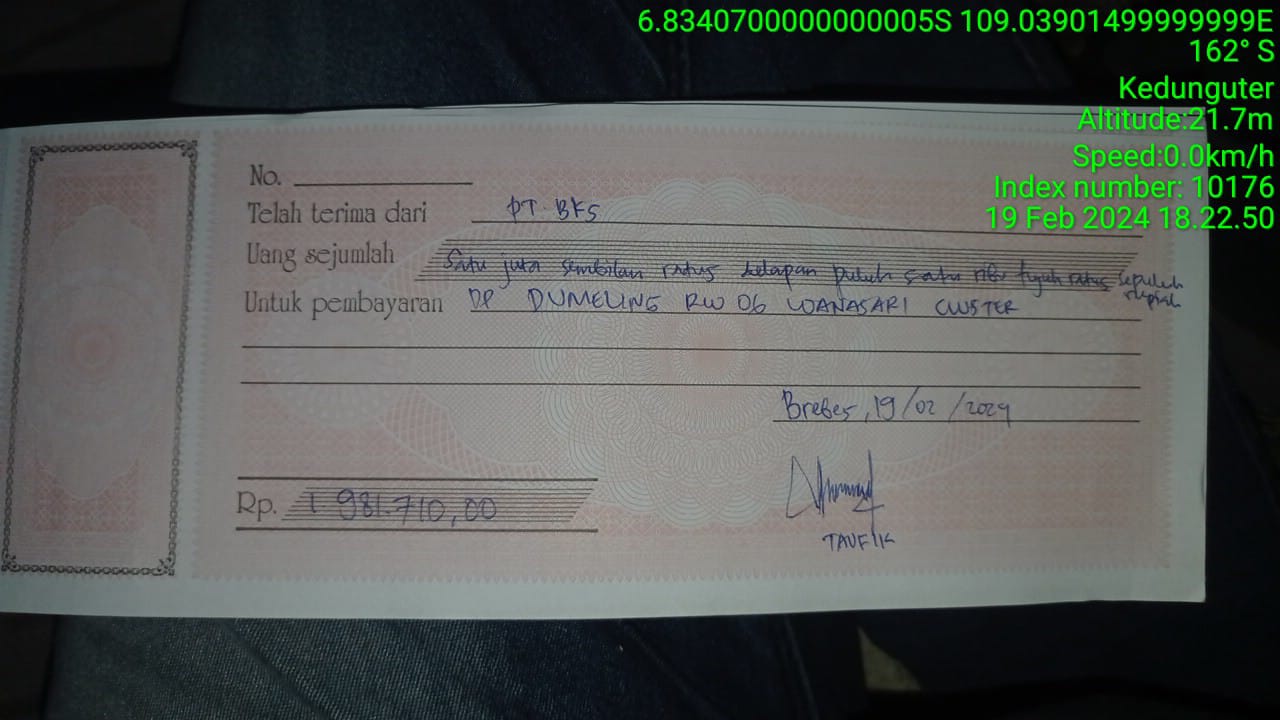 6.8340700000000005S 109.03901499999999E
162° S
Kedunguter
Altitude:21.7m
Speed:0.0km/h
Index number: 10176
19 Feb 2024 18.22.50
No.
Telah terima dari PT. BKS
Uang sejumlah Satu juta sembilan ratus delapan puluh satu ribu tujuh ratus sepuluh rupiah
Untuk pembayaran DP DUMELING RW 06 WANASARI CLUSTER
Brebes, 19/02/2024
Rp. 1.981.710,00
TAUFIK